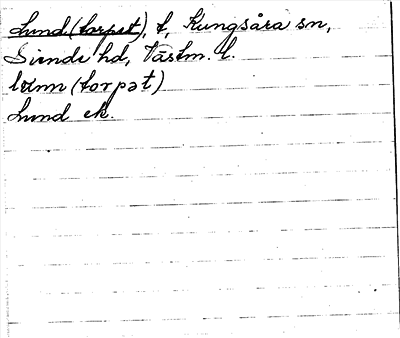 Lund (torpet), t, Kungsåra sn,
Siende hd, Västm. l.
(torpət)
Lund ek.